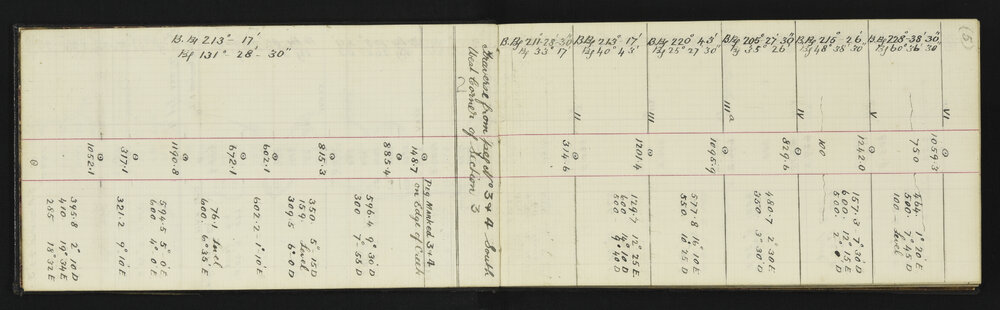 B.Bg 213° - 17'
Bg 131° 28' - 30"
1052.1
317.1
1190.8
672.1
602.1
815.3
885.4
148.7
395.8 2° 10 D
410 19° 34 E
265 18° 32 E
321.2 9° 10' E
594.5 5° 0' E
600 4° 0' E
76.1 Level
600. 6° 38' E
602.2 1° 10' E
350 5° 15 D
159 Level
309.5 6° 0 D
596.4 9° 30' D
300 7° 55 D
Peg Marked 3&4
on Edge of
Traverse from peg No 3&4 South
West Corner of Section 3
2
(5)
B.Bg 211-28-30"
Bg 33° 17
B.Bg 213° 17'
Bg 40° 43'
B.Bg 220° 43'
Bg 25° 27' 30"
B.Bg 205° 27' 30"
Bg 35° 26'
B.Bg 215° 26'
Bg 48° 38' 30"
B.Bg 228° 38' 30"
Bg 60° 36' 30"
II
III
III a
IV
V
VI
314.6
1201.4
1095.9
829.6
100
1242.0
750
1059.3
129.7 12° 25 E
600 14° 10 D
500 9° 40 D
577.8 14° 10 E
550 10° 25 D
480.7 2° 30 E
350 3° 30' D
157.3 7° 30 D
600. 12° 15 E
500 2° 0' D
464. 1° 20' E
500. 7° 45 D
100. Level